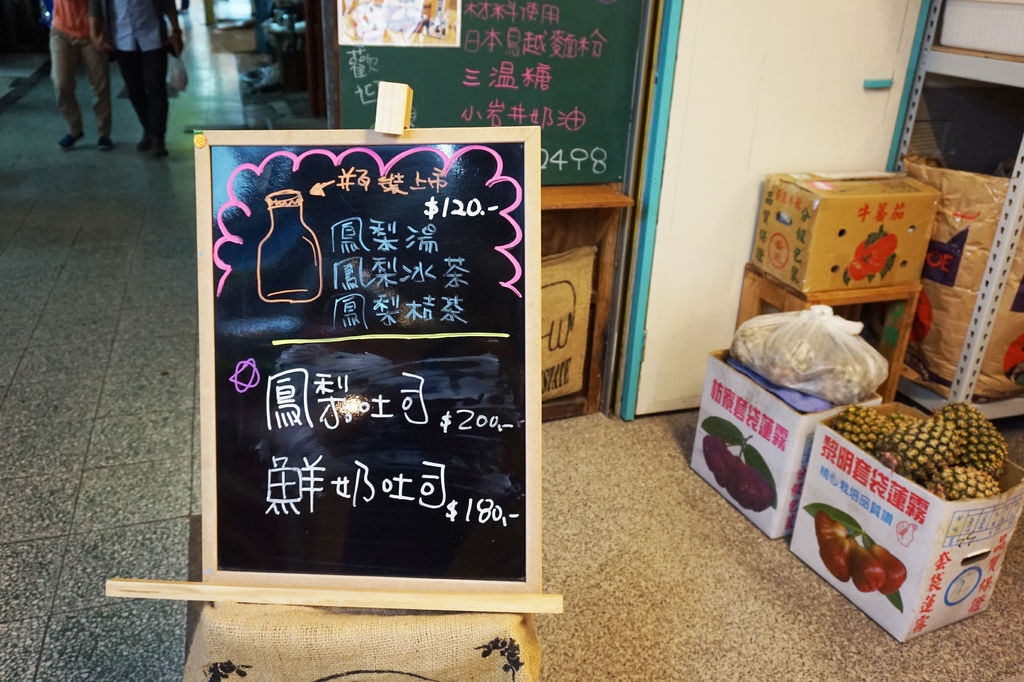 材料使用
日本鳥越麵粉
三溫糖
小岩井奶油
歡
2498
瓶裝上市
$120.-
鳳梨湯
鳳梨冰茶
鳳梨桔茶
鳳梨吐司 $200.-
鮮奶吐司 $180.-
牛蕃茄
品質保證
分級包裝
枋寮套袋蓮霧
黎明套袋蓮霧
精心栽培品質讚
套袋蓮霧
品質保證
STATE